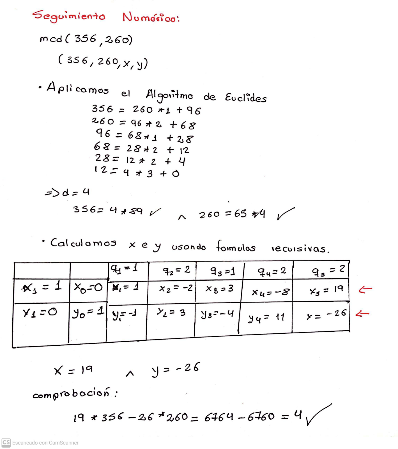 Seguimiento Numérico:
mcd(356,260)
(356,260,x,y)
• Aplicamos el Algoritmo de Euclides
356 = 260 * 1 + 96
260 = 96 * 2 + 68
96 = 68 * 1 + 28
68 = 28 * 2 + 12
28 = 12 * 2 + 4
12 = 4 * 3 + 0
=> d = 4
356 = 4 * 89 ✓ ∧ 260 = 65 * 4 ✓
• Calculamos x e y usando formulas recursivas.
q₁ = 1 q₂ = 2 q₃ = 1 q₄ = 2 q₅ = 2
x₁ = 1 x₀ = 0 x₁ = 1 x₂ = -2 x₃ = 3 x₄ = -8 x₅ = 19 ←
y₁ = 0 y₀ = 1 y₁ = -1 y₂ = 3 y₃ = -4 y₄ = 11 y = -26 ←
x = 19 ∧ y = -26
comprobación:
19 * 356 - 26 * 260 = 6764 - 6760 = 4 ✓
CS Escaneado con CamScanner